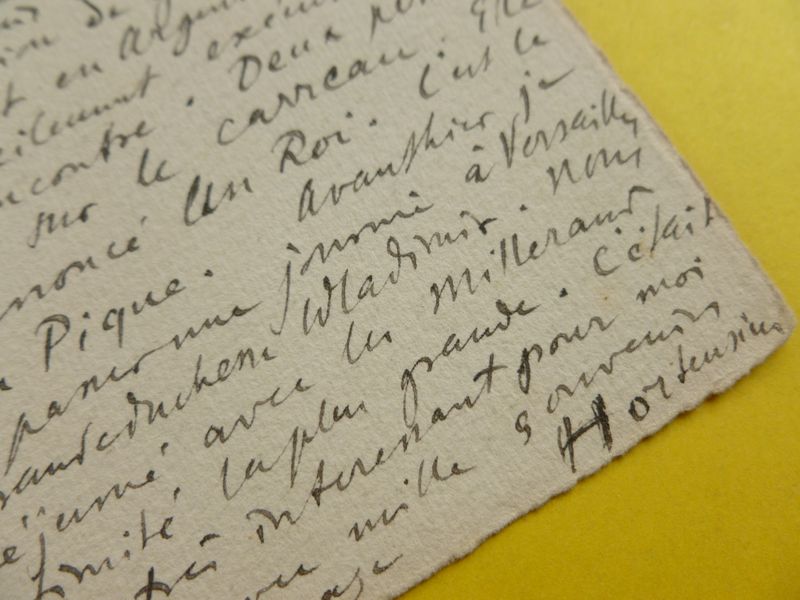 en Argen
exécu
contre. Deux
sur le carreau. Elle
noncé Un Roi. C'est le
Pique. Avanthier je
passer une journée à Versailles
randeduchesse Wladimir. nous
éjeuné avec les Millerand
timité, la plus grande. C'était
très interessant pour moi
mille souvenirs
Hortensius